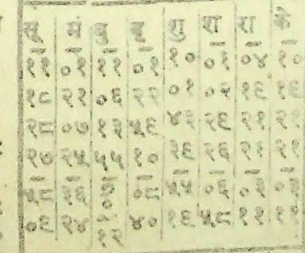 सू मं बु बृ शु श रा के
११ ०१ ११ ०१ १० ०१ ०४ १०
१८ २१ ०६ २२ ०१ ०२ १६ १६
२८ ०७ १३ ५६ ४३ २६ २१ २१
२७ २५ ५५ १० २६ २६ ११ ११
५८ ३६ ०८ ५५ ०६ ०३ ०३
०६ २४ १२ ४० १६ ५८ ११ ११